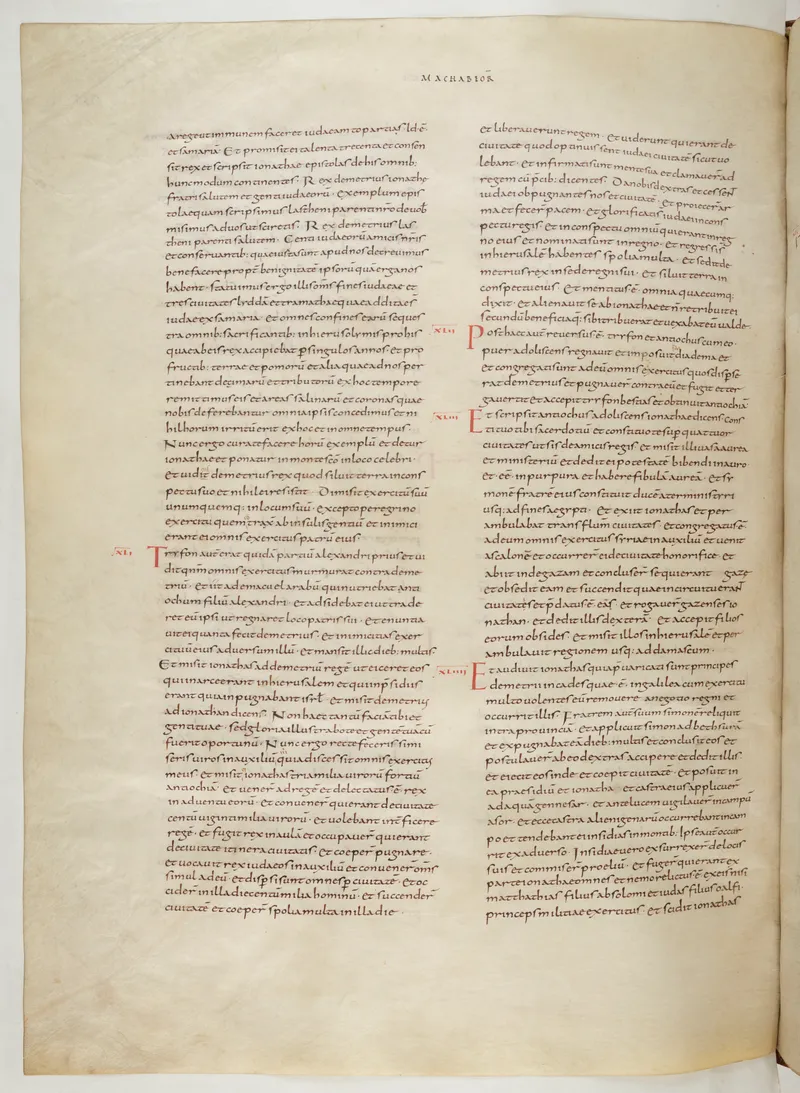 MACHABIOR̄
aregeut immunem faceret iudaeam topartiaſ ld. ē.
et ſamariā. Et promiſit ei talenta trecenta et conſen
ſit rex et ſcripſit ionathae epiſtolaſ de hiſ omnib;
hunc modum continenteſ. Rex demetriuſ ionathe
fratri ſalutem et genti iudaeorū. exemplum epiſ
tolae quam ſcripſimuſ laſtheni parenti nr̄o de uob
miſimuſ ad uoſ ut ſciretiſ. Rex demetriuſ laſ
theni parenti ſalutem. Genti iudaeorū amiciſ nr̄iſ
et conſeruantib; quae iuſta ſunt apud noſ decreuimuſ
benefacere propt̄ benignitatē ipſorū quā erga noſ
habent. ſtatuimuſ ergo illiſ om̄ſ fineſ iudaeae et
treſ ciuitateſ lyddā et ramatha quae additae ſ̄
iudaeae ex ſamaria. et omneſ confineſ earū ſequeſ
tra omnib; ſacrificantib; in hieruſolymiſ pro hiſ
quae ab eiſ rex accipiebat p ſinguloſ annoſ et pro
fructib; terrae et pomorū et alia quae ad noſ per
tinebant decimarū et tributorū ex hoc tempore
remittimuſ eiſ et areaſ ſalinarū et coronaſ quae
nobiſ deferebantur omnia ipſiſ concedimuſ et ni
hil horum irritū erit ex hoc et in omne tempuſ.
Nunc ergo curate facere horū exemplū et detur
ionathae et ponatur in monte ſc̄o in loco celebri.
et uidit demetriuſ rex quod ſiluit terra in conſ
pectu ſuo et nihil ei reſiſtit. Dimiſit exercitū ſuū
unumquemq; in locum ſuū. excepto peregrino
exercitu quem traxit ab inſuliſ gentiū et inimici
erant ei omniſ exercituſ patrū eiuſ
XLI Tryfon autē erat quidā partiū alexandri priuſ et ui
dit qnm omniſ exercituſ murmurat contra deme
triū. et iit ad emalcuel arabū qui nutriebat anti
ochum filiū alexandri. et adſidebat ei ut trade
ret eū ipſi ut regnaret loco patriſ ſui. et enuntia
uit ei quanta fecit demetriuſ. et inimicitiaſ exer
cituū eiuſ aduerſum illū. et manſit illic dieb; multiſ
Et miſit ionathaſ ad demetriū regē ut eiceret eoſ
qui in arce erant in hieruſalem et qui in p̄ſidiiſ
erant quia inpugnabant iſrl̄. et miſit demetriuſ
ad ionathan dicenſ. Non haec tantū faciā tibi et
genti tuae. ſed gloria illuſtrabo te et gentē tuā cū
fuerit oportunū. Nunc ergo recte feceriſ ſi mi
ſeriſ uiroſ in auxiliū quia diſceſſit omniſ exercituſ
meuſ. et miſit ei ionathaſ tria milia uirorū fortiū
antiochiā. et uener̄ ad regē et delectatuſ ē rex
in aduentu eorū. et conuener̄ qui erant de ciuitate
centū uiginti milia uirorū. et uolebant int̄ficere
regē. et fugit rex in aulā et occupauer̄ qui erant
de ciuitate itinera ciuitatiſ. et coeper̄ pugnare.
et uocauit rex iudaeoſ in auxiliū et conuener̄ om̄ſ
ſimul ad eū. et diſpſi ſunt omneſ p ciuitatē. et oc
cider̄ in illa die centū milia hominū. et ſuccender̄
ciuitatē et coeper̄ ſpolia multa in illa die.
et liberauerunt regem. et uiderunt qui erant de
ciuitate quod optinuiſſent iudaei ciuitatē ſicut uo
lebant. et infirmati ſunt mente ſua et clamauer̄ ad
regem cū p̄cib; dicenteſ. Da nobiſ dextraſ et ceſſent
iudaei obpugnanteſ noſ et ciuitatē. et proiecer̄ ar
ma et fecer̄ pacem. et glorificati ſ̄ iudaei in conſ
pectu regiſ et in conſpectu omniū qui erant in reg
no eiuſ et nominati ſunt in regno. et regreſſi ſ̄
in hieruſalē habenteſ ſpolia multa. et ſedit de
metriuſ rex in ſede regni ſui. et ſiluit terra in
conſpectu eiuſ. et mentituſ ē. omnia quaecumq;
dixit. et alienauit ſe ab ionatha et n̄ retribuit ei
ſecundū beneficia q; ſibi tribuerat et uexabat eū ualde.
XLII Poſt haec autē reuerſuſ ē. tryfon et antiochuſ cum eo
puer adoliſcenſ regnauit et impoſuit diadema et
et congregati ſunt ad eū omniſ exercituſ quoſ diſpſe
rat demetriuſ et pugnauer̄ contra eū et fugit et ter
ga uertit et accepit tryfon beſtiaſ et obtinuit antiochiā
XLIII Et ſcripſit antiochuſ adoliſcenſ ionathae dicenſ conſ
tituo tibi ſacerdotiū et conſtituo te ſup quattuor
ciuitateſ ut ſiſ de amiciſ regiſ. et miſit illi uaſa aurea
et miniſteriū et dedit ei poteſtatē bibendi in auro
et eē in purpura et habere fibulā aureā. et ſy
monē fratrē eiuſ conſtituit ducē a terminiſ tyri
uſq; ad fineſ aegypti. et exiit ionathaſ et per
ambulabat tranſ flum̄ ciuitateſ. et congregatuſ ē
ad eum omniſ exercituſ ſyriae in auxiliū et uenit
aſcalonē et occurrer̄ ei de ciuitate honorifice. et
abiit inde gazam et concluſer̄ ſe qui erant gaze
et obſedit eam et ſuccendit quae in circuitu eran̄
ciuitateſ et p̄datuſ ē. eaſ. et rogauer̄ gazenſeſ io
nathan. et dedit illiſ dexterā. et accepit filioſ
eorum obſideſ. et miſit illoſ in hieruſalē et per
ambulauit regionem uſq; ad damaſcum.
XLIIII Et audiuit ionathaſ quia p̄uaricati ſunt principeſ
demetrii in cadeſ quae ē. in galilea cum exercitu
multo uolenteſ eū remouere a negotio regni et
occurrit illiſ. Fratrem autē ſuum ſimonē reliquit
intra prouinciā. et applicuit ſimon ad bethſurā
et expugnabat eā dieb; multiſ et concluſit eoſ et
poſtulauer̄ ab eo dextraſ accipere et dedit illiſ
et eiecit eoſ inde et coepit ciuitatē. et poſuit in
ea praeſidiū et ionatha. et caſtra eiuſ applicuer̄
ad aquā genneſar. et ante lucem uigilauer̄ in campū
aſor. et ecce caſtra alienigenarū occurrebant in cam
po et tendebant ei inſidiaſ in montib; Ipſe autē occur
rit ex aduerſo. Inſidiae uero exſurrexer̄ de lociſ
ſuiſ et commiſer̄ proeliū. et fuger̄ qui erant ex
parte ionathae omneſ et nemo relictuſ ē. ex eiſ niſi
matthathiaſ filiuſ abſolomi et iudaſ filiuſ calfi.
princepſ militiae exercituſ. et ſcidit ionathaſ